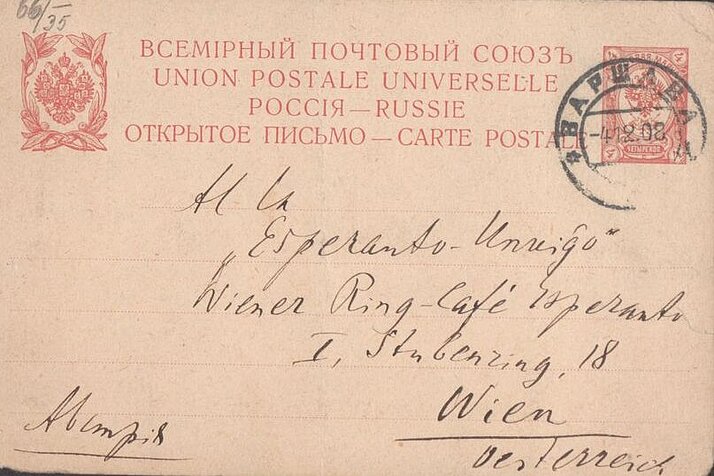 66/35
ВСЕМІРНЫЙ ПОЧТОВЫЙ СОЮЗЪ
UNION POSTALE UNIVERSELLE
РОССІЯ—RUSSIE
ОТКРЫТОЕ ПИСЬМО—CARTE POSTALE
4 4
ВАРШАВА
-4.12.08
4 4
ЧЕТЫРЕ КОП.
Al la
„Esperanto-Unuiĝo“
Wiener Ring-Café Esperanto
I, Stubenring, 18
Wien
Австрія
Oesterreich